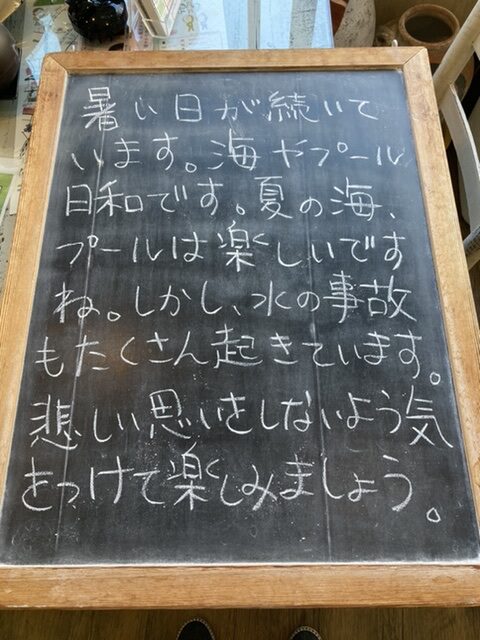 暑い日が続いて
います。海やプール
日和です。夏の海、
プールは楽しいです
ね。しかし、水の事故
もたくさん起きています。
悲しい思いをしないよう気
をつけて楽しみましょう。